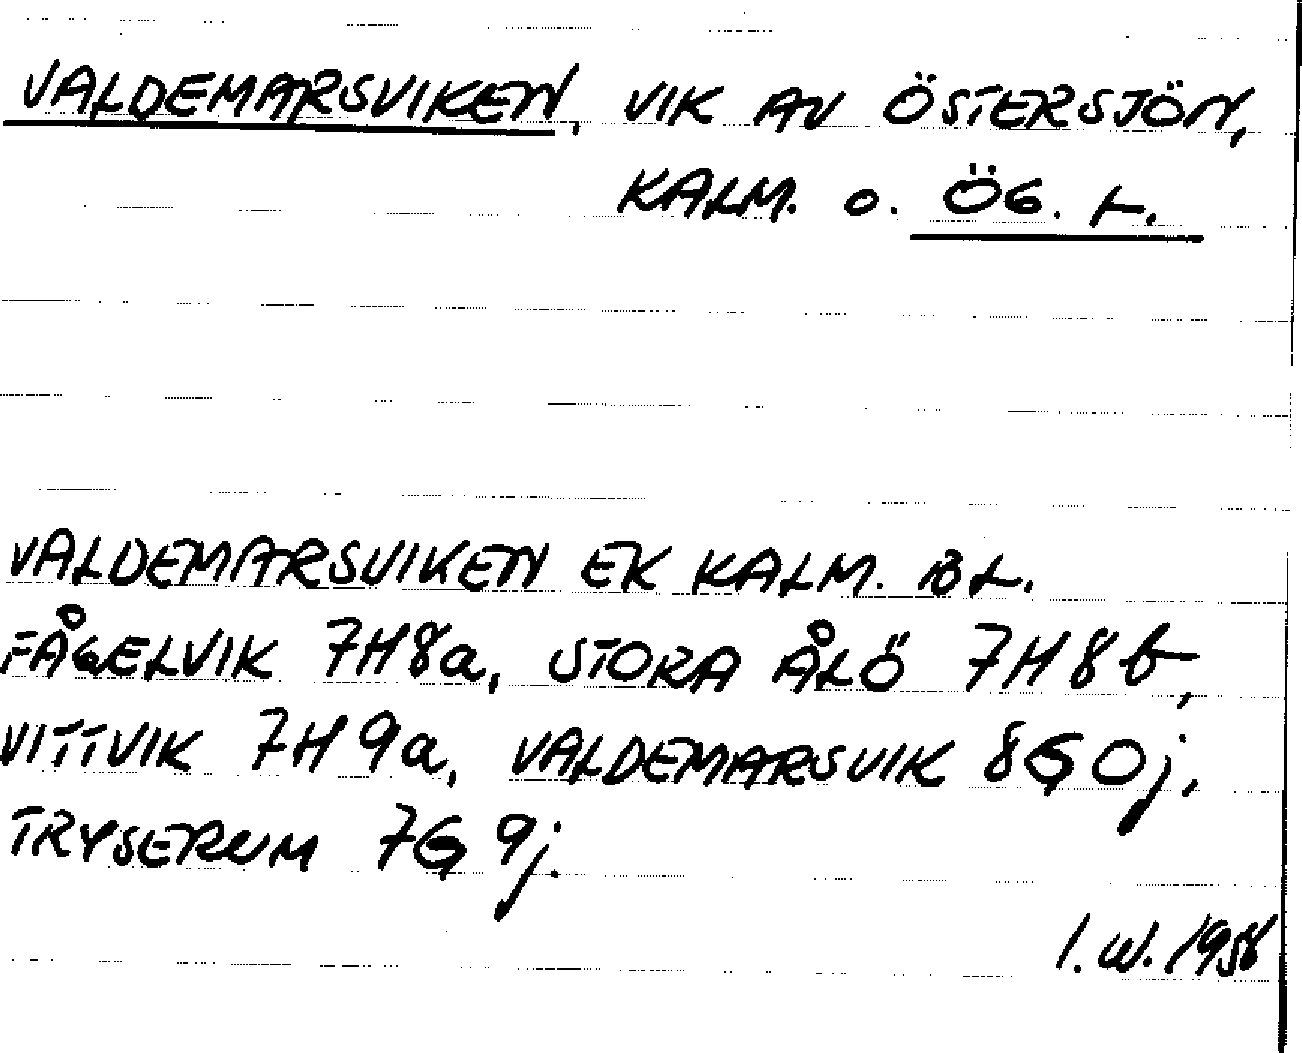 VALDEMARSVIKEN, VIK AV ÖSTERSJÖN,
KALM. O. ÖG. L.
VALDEMARSVIKEN EK KALM. BL.
FÅGELVIK 7H8a, STORA ÅLÖ 7H8b,
VITTVIK 7H9a, VALDEMARSVIK 8G0j,
TRYSERUM 7G9j.
I.W. 1958